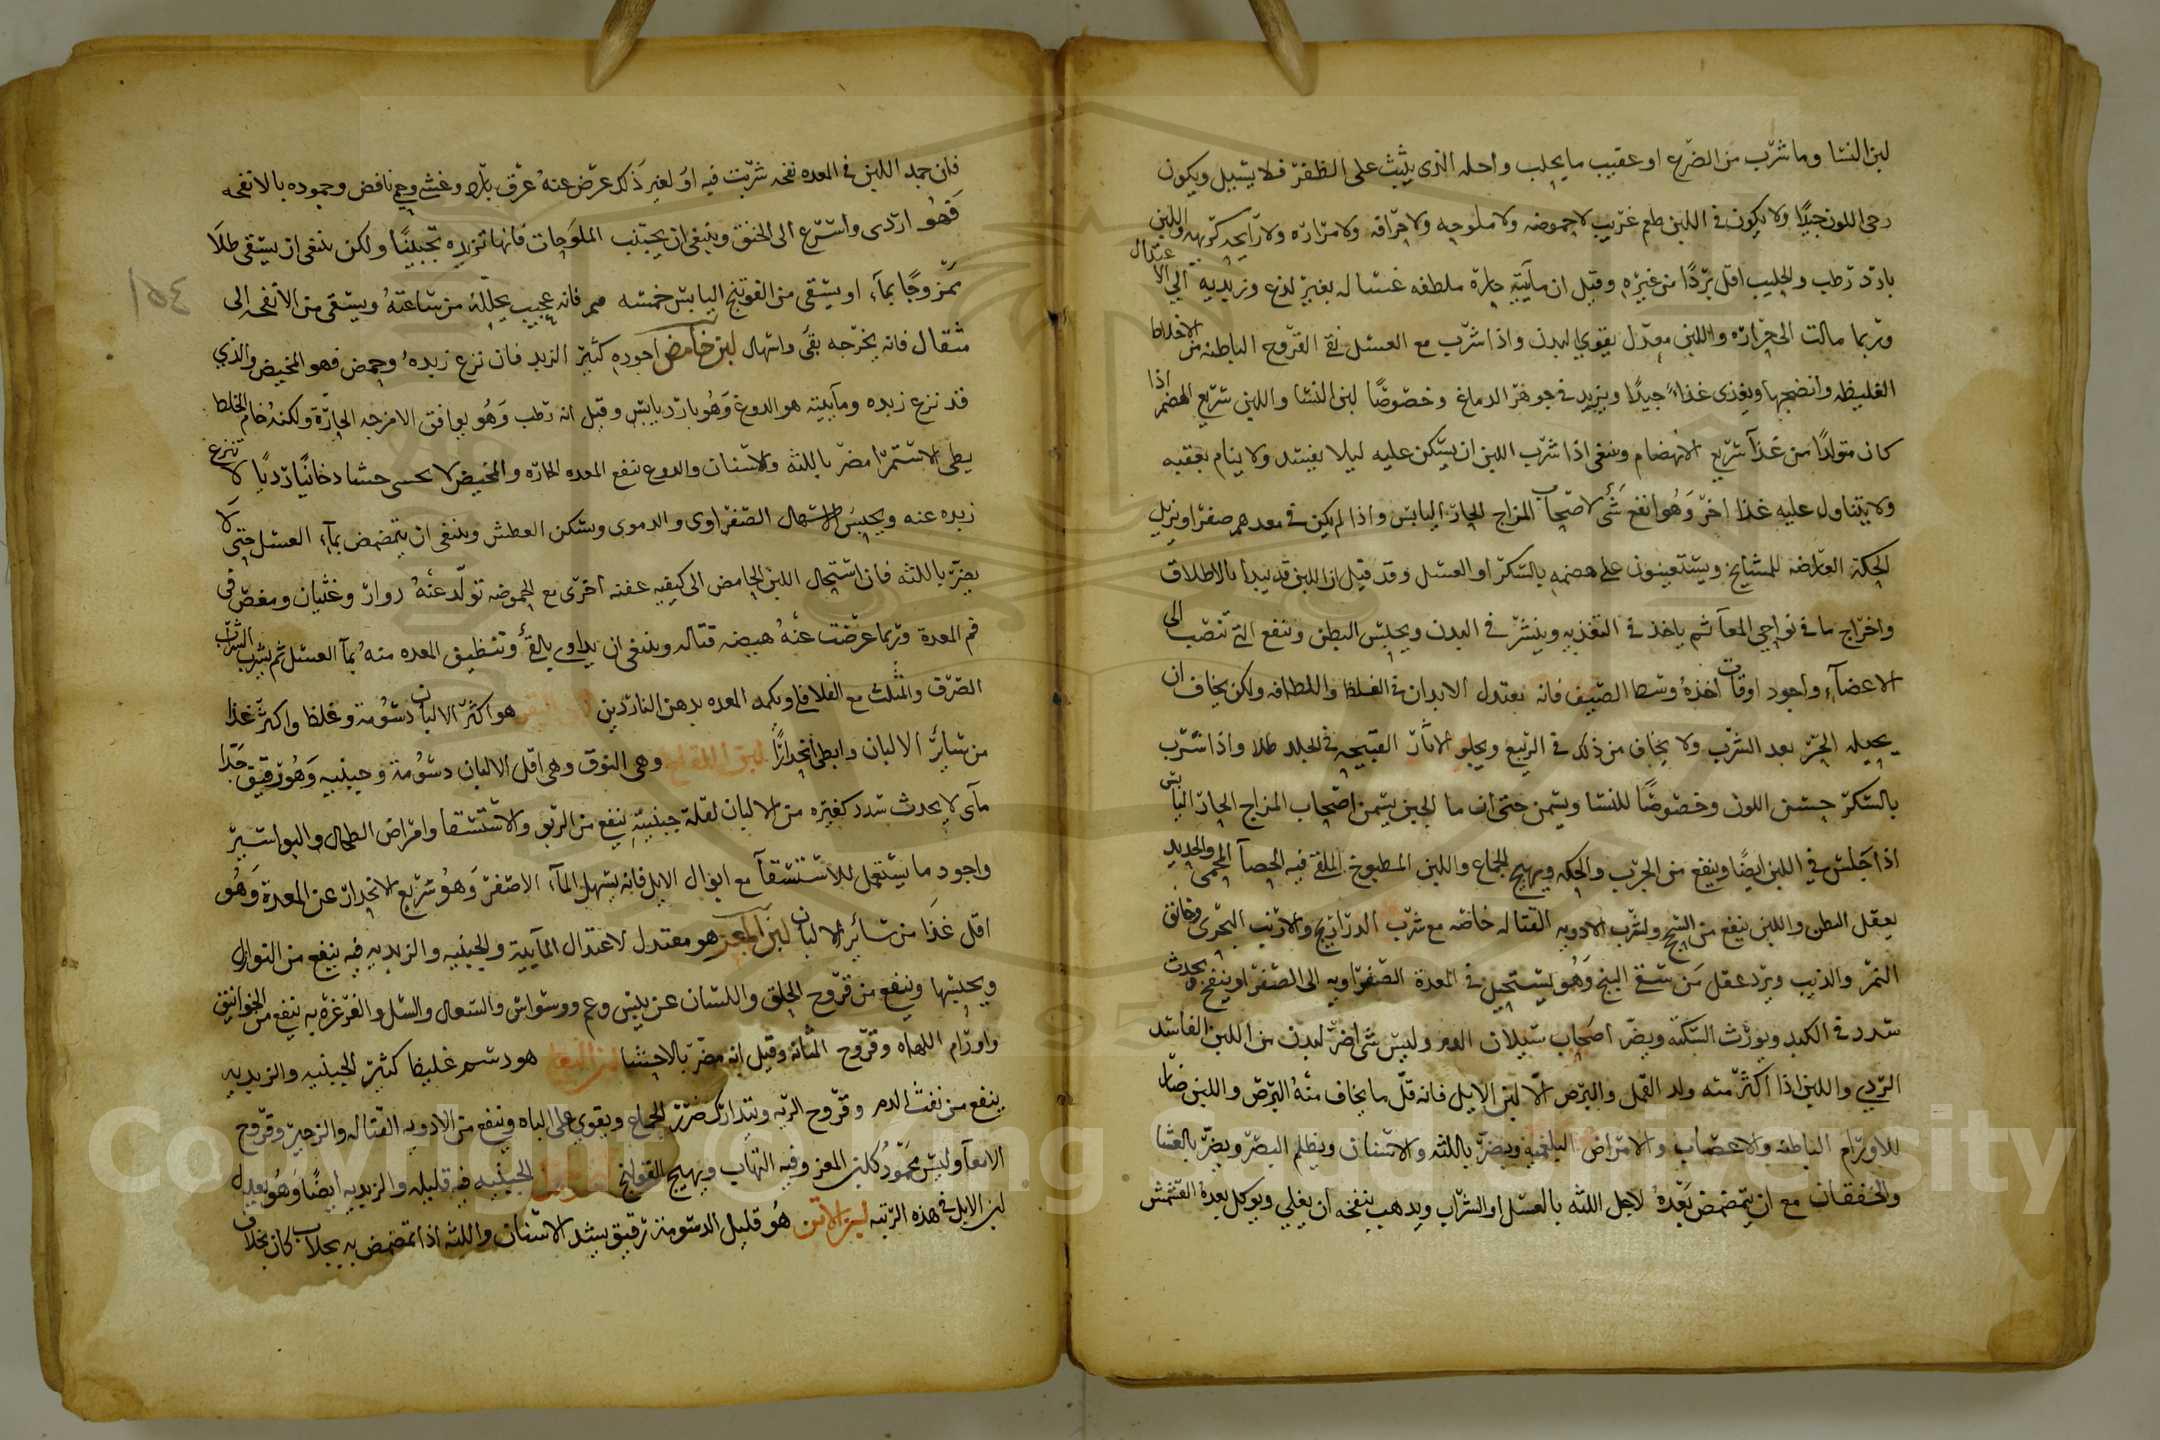 لبن النسا وما شرب من الضرع او عقيب ما يحلب واحله الذى يثبث على الظفر فلا يسيل ويكون
رحى اللون جيدًا ولا يكون فى اللبن طعم غريب لا حموضه ولا ملوحه ولا حرافه ولا مراره ولا رايحه كريهه واللبن
بارد رطب والحليب اقل بردًا من غيره وقيل ان مآييته حاره ملطفه غساله بغير لذع وزبديه الى الاعتدال
وربما مالت الى حراره واللبن معدل يقوي البدن واذا شرب مع العسل نقى القروح الباطنه من الاخلاط
الغليظه وانضجها ويغذى غذاءً جيدًا ويزيد فى جوهر الدماغ وخصوصًا لبن النسا واللبن سريع الهضم اذا
كان متولدًا من غذآ سريع الانهضام وينبغى اذا شرب اللبن ان يسكن عليه ليلا يفسد ولا ينام بعقبه
ولا يتناول عليه غذا اخر وَهُو انفع شَى لاصحاب المزاج الحار اليابس واذا لم يكن فى معدهم صفرا ويزيل
الحكة العارضه للمشايخ ويستعينون على هضمه بالسكر او العسل وقد قيل ان اللبن قد يبدا بالاطلاق
واخراج ما فى نواحى المعآ ثم ياخذ فى التغذيه وينشر فى البدن ويحبس البطن وينفع التى تنصب الى
الاعضآء واجود اوقات اخذهُ وسط الصيف فانه بعتدل الابدان فى الغلظ واللطافه ولكن يخاف ان
يحيله الحر بعد الشرب ولا يخاف من ذلك فى الربيع ويجلو الاثار القبيحه فى الجلد طلا واذا شرب
بالسكر حسن اللون وخصوصًا للنسا ويسمن حتى ان ما الجبن يسمن اصحاب المزاج الحار اليابس
اذا جَلَس فى اللبن ايضًا وينفع من الجرب والحكه ويهيج الجماع واللبن المطبوخ الملقى فيه الحصآ المحمى والحديد
يعقل البطن واللبن ينفع من السحج ولشرب الادويه القتاله خاصه مع شرب الذراريح والارنب البحرى وخانق
النمر والذيب ويرد عقل مَن سقى البنج وَهُو يستحيل فى المعدة الصفراويه الى الصفرا وينفخ ويحدث
سدد فى الكبد ويورث السكته ويضر اصحاب سيلان الدم وليس شى اضر لبدن من اللبن الفاسد
الردي واللبن اذا اكثر منه ولد القمل والبرص الّا لبن الابل فانه قلّ ما يخاف منهُ البرص واللبن ضار
للاورام الباطنه والاعصاب والامراض البلغميه ويضر باللثه والاسنان ويظلم البصر ويضر بالعشا
والخفقان مع ان يتمضمض بَعْدهُ لاجل اللثه بالعسل او الشراب ويدهب بنفخه ان يغلي ويوكل بعده المشمش
فان جمد اللبن فى المعده نفحه شربت فيه اوْ لغير ذَلك عرض عنهُ عرق بارد وغشى وحمى نافض وجموده بالانفحه
فَهُو اردى واسرع الى الخنق وينبغى ان يجتنب الملوحات فانها تزيده تجبينًا ولكن ينبغى ان يسقى طلَا
ممزوجًا بمآء او يسقى من الفوتنج اليابس خمسه هم فانه عجيب يحللهُ من ساعتهُ ويسقى من الانفحه الى
مثقال فانه يخرجه بقى واسهال لبن حامض اجوده كثير الزبد فان نزع زبدهُ وحمض فهو المخيض والذي
قد نزع زبده ومآييته هو الدوغ وَهُو بارد يابس وقيل انه رطب وَهُو يوافق الامزجه الحارّة ولكنهُ خام الخلط
بطى الاستمرا مضر باللثه والاسنان والدوغ ينفع المعده الحاره والمخيض لا يحسى حشا دخانيًا رديًا لا تنزع
زبده عنه ويحبسَ الاسهال الصفراوى والدموى ويسكن العطش وينبغى ان يتمضمض بمآء العسل حتى لَا
يضر باللثه فان استحال اللبن الحامض الى كيفيه عفنه اخرى مع الحموضه تولّد عنهُ دوار وغثيان ومغص فى
فم المعدة وربما عرضت عنهُ هيضه قتاله وينبغى ان يداوى بالقى وتنظيف المعده منهُ بمآ العسل ثم يشرب الشراب
الصرف والمثلث مع الفلافلى ويكمد المعده بدهن الناردين لبن البقر هو اكثر الالبان دسُومة وغلظا واكثر غذا
من سائر الالبان وابطى انحدارًا لبن اللقاح وهى النوق وهى اقل الالبان دسُومة وجبنيه وَهُو رقيق جدًا
مآى لا يحدث سدد كغيره من الالبان لقلة جبنيته ينفع من الربو والاستسقا وامراض الطحال والبواسير
واجود ما يستعمل للاستسقآ مع ابوال الابل فانه يسهل المآء الاصفر وَهُو سريع الانحدار عن المعدة وَهُو
اقل غذَا من سائر الالبان لبن المَعز هو معتدل لاعتدال المآيية والجبنيه والزبديه فيه ينفع من النوازل
ويحبسها وينفع من قروح الحلق واللسان عن يبس وغم ووسواس والسعال والسل والغرغره به ينفع من الخوانيق
واورام اللهاه وقروح المثانه وقيل انه مضر بالاحشا لبن النعاج هو دسم غليظ كثير الجبنيه والزبديه
ينفع من نفث الدم وقروح الريه ويتدارك ضرر الجماع ويقوى على الباه وينفع من الادويه القتاله والزحير وقروح
الامعآ وليس محمودُ كلبن المعز وفيه التهاب ويهيج القولنج الجبنيه فيه قليله والزبديه ايضًا وَهُو يعدل
لبن الابل فى هذه الرتبه لبن الاتن هُو قليل الدسومة رقيق يشد الاسنان واللثه اذا تمضمض به بخلاف